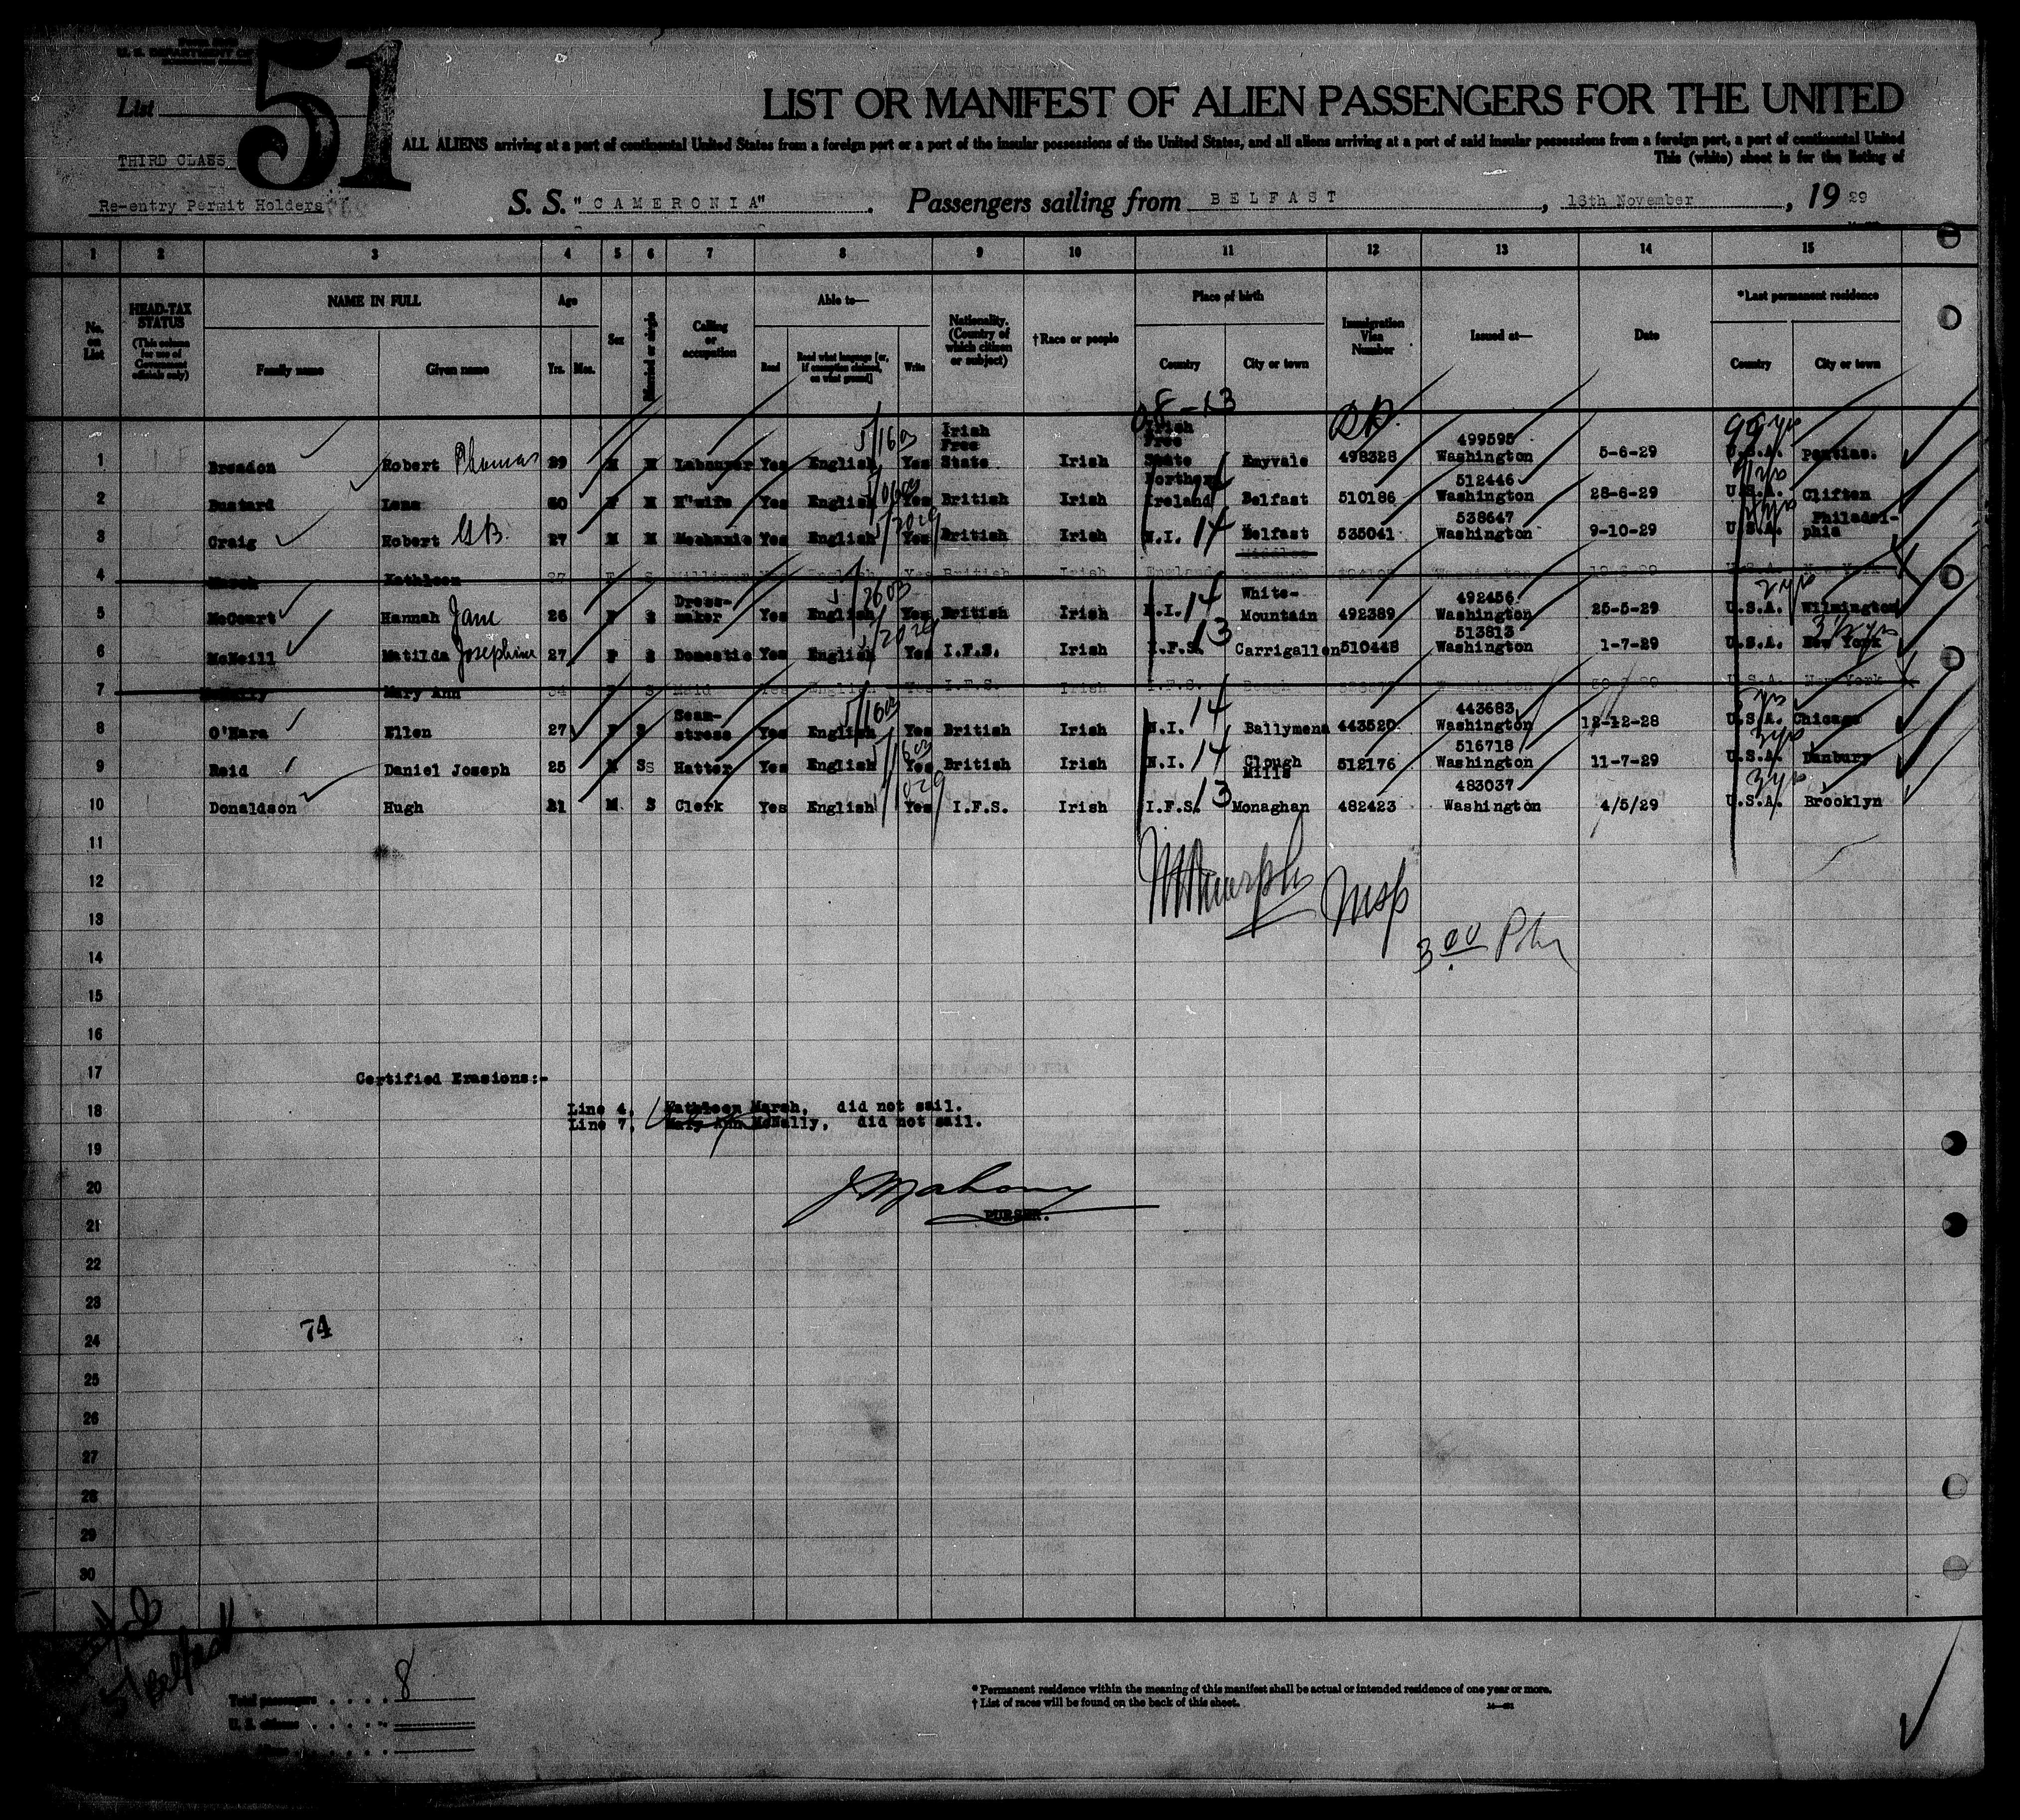 U. S. DEPARTMENT OF
List
51
LIST OR MANIFEST OF ALIEN PASSENGERS FOR THE UNITED
ALL ALIENS arriving at a port of continental United States from a foreign port or a port of the insular possessions of the United States, and all aliens arriving at a port of said insular possessions from a foreign port, a port of continental United
This (white) sheet is for the listing of
THIRD CLASS
Re-entry Permit Holders
S. S. "CAMERONIA" . Passengers sailing from BELFAST , 16th November , 19 29
1 2 3 4 5 6 7 8 9 10 11 12 13 14 15
No. on List
HEAD-TAX STATUS (This column for use of Government officials only)
NAME IN FULL Family name Given name
Age Yrs. Mos.
Sex
Married or single
Calling or occupation
Able to— Read Read what language [or, if exemption claimed, on what ground] Write
Nationality. (Country of which citizen or subject)
†Race or people
Place of birth Country City or town
Immigration Visa Number
Issued at—
Date
*Last permanent residence Country City or town
1 Breadon Robert Thomas 29 M M Labourer Yes English Yes Irish Free State Irish Irish Free State Emyvale 498328 499595 Washington 5-6-29 U.S.A. Pontiac.
2 Bustard Lena 60 F M H'wife Yes English Yes British Irish Northern Ireland Belfast 510186 512446 Washington 28-6-29 U.S.A. Clifton
3 Craig Robert G.B. 27 M M Mechanic Yes English Yes British Irish N.I. 14 Belfast 535041 538647 Washington 9-10-29 U.S.A. Philadelphia
4 Marsh Kathleen 27 F S Milliner English Yes British Irish England Washington U.S.A. New York
5 McCourt Hannah Jane 26 F S Dress-maker Yes English Yes British Irish N.I. 14 White-Mountain 492389 492456 Washington 25-5-29 U.S.A. 2 yrs Wilmington
6 McNeill Matilda Josephine 27 F S Domestic Yes English Yes I.F.S. Irish I.F.S. 13 Carrigallen 510448 513813 Washington 1-7-29 U.S.A. 3½ yrs New York
7 McNally Mary Ann 34 F S Maid Yes English Yes I.F.S. Irish I.F.S. U.S.A. New York
8 O'Hara Ellen 27 F S Seam-stress Yes English Yes British Irish N.I. 14 Ballymena 443520 443683 Washington 12-12-28 U.S.A. Chicago
9 Reid Daniel Joseph 25 M S S Hatter Yes English Yes British Irish N.I. 14 Clough Mills 512176 516718 Washington 11-7-29 U.S.A. 3 yrs Danbury
10 Donaldson Hugh 21 M S Clerk Yes English Yes I.F.S. Irish I.F.S. 13 Monaghan 482423 483037 Washington 4/5/29 U.S.A. 3 yrs Brooklyn
11
12
13
14
3 00 Pm
15
16
17 Certified Erasions:-
18 Line 4, Kathleen Marsh, did not sail.
Line 7, Mary Ann McNally, did not sail.
19
20 J Mahony
21 PURSER.
22
23
24 74
25
26
27
28
29
30
Belfast
Total passengers . . . . 8
U. S. citizens . . . . .
* Permanent residence within the meaning of this manifest shall be actual or intended residence of one year or more.
† List of races will be found on the back of this sheet.